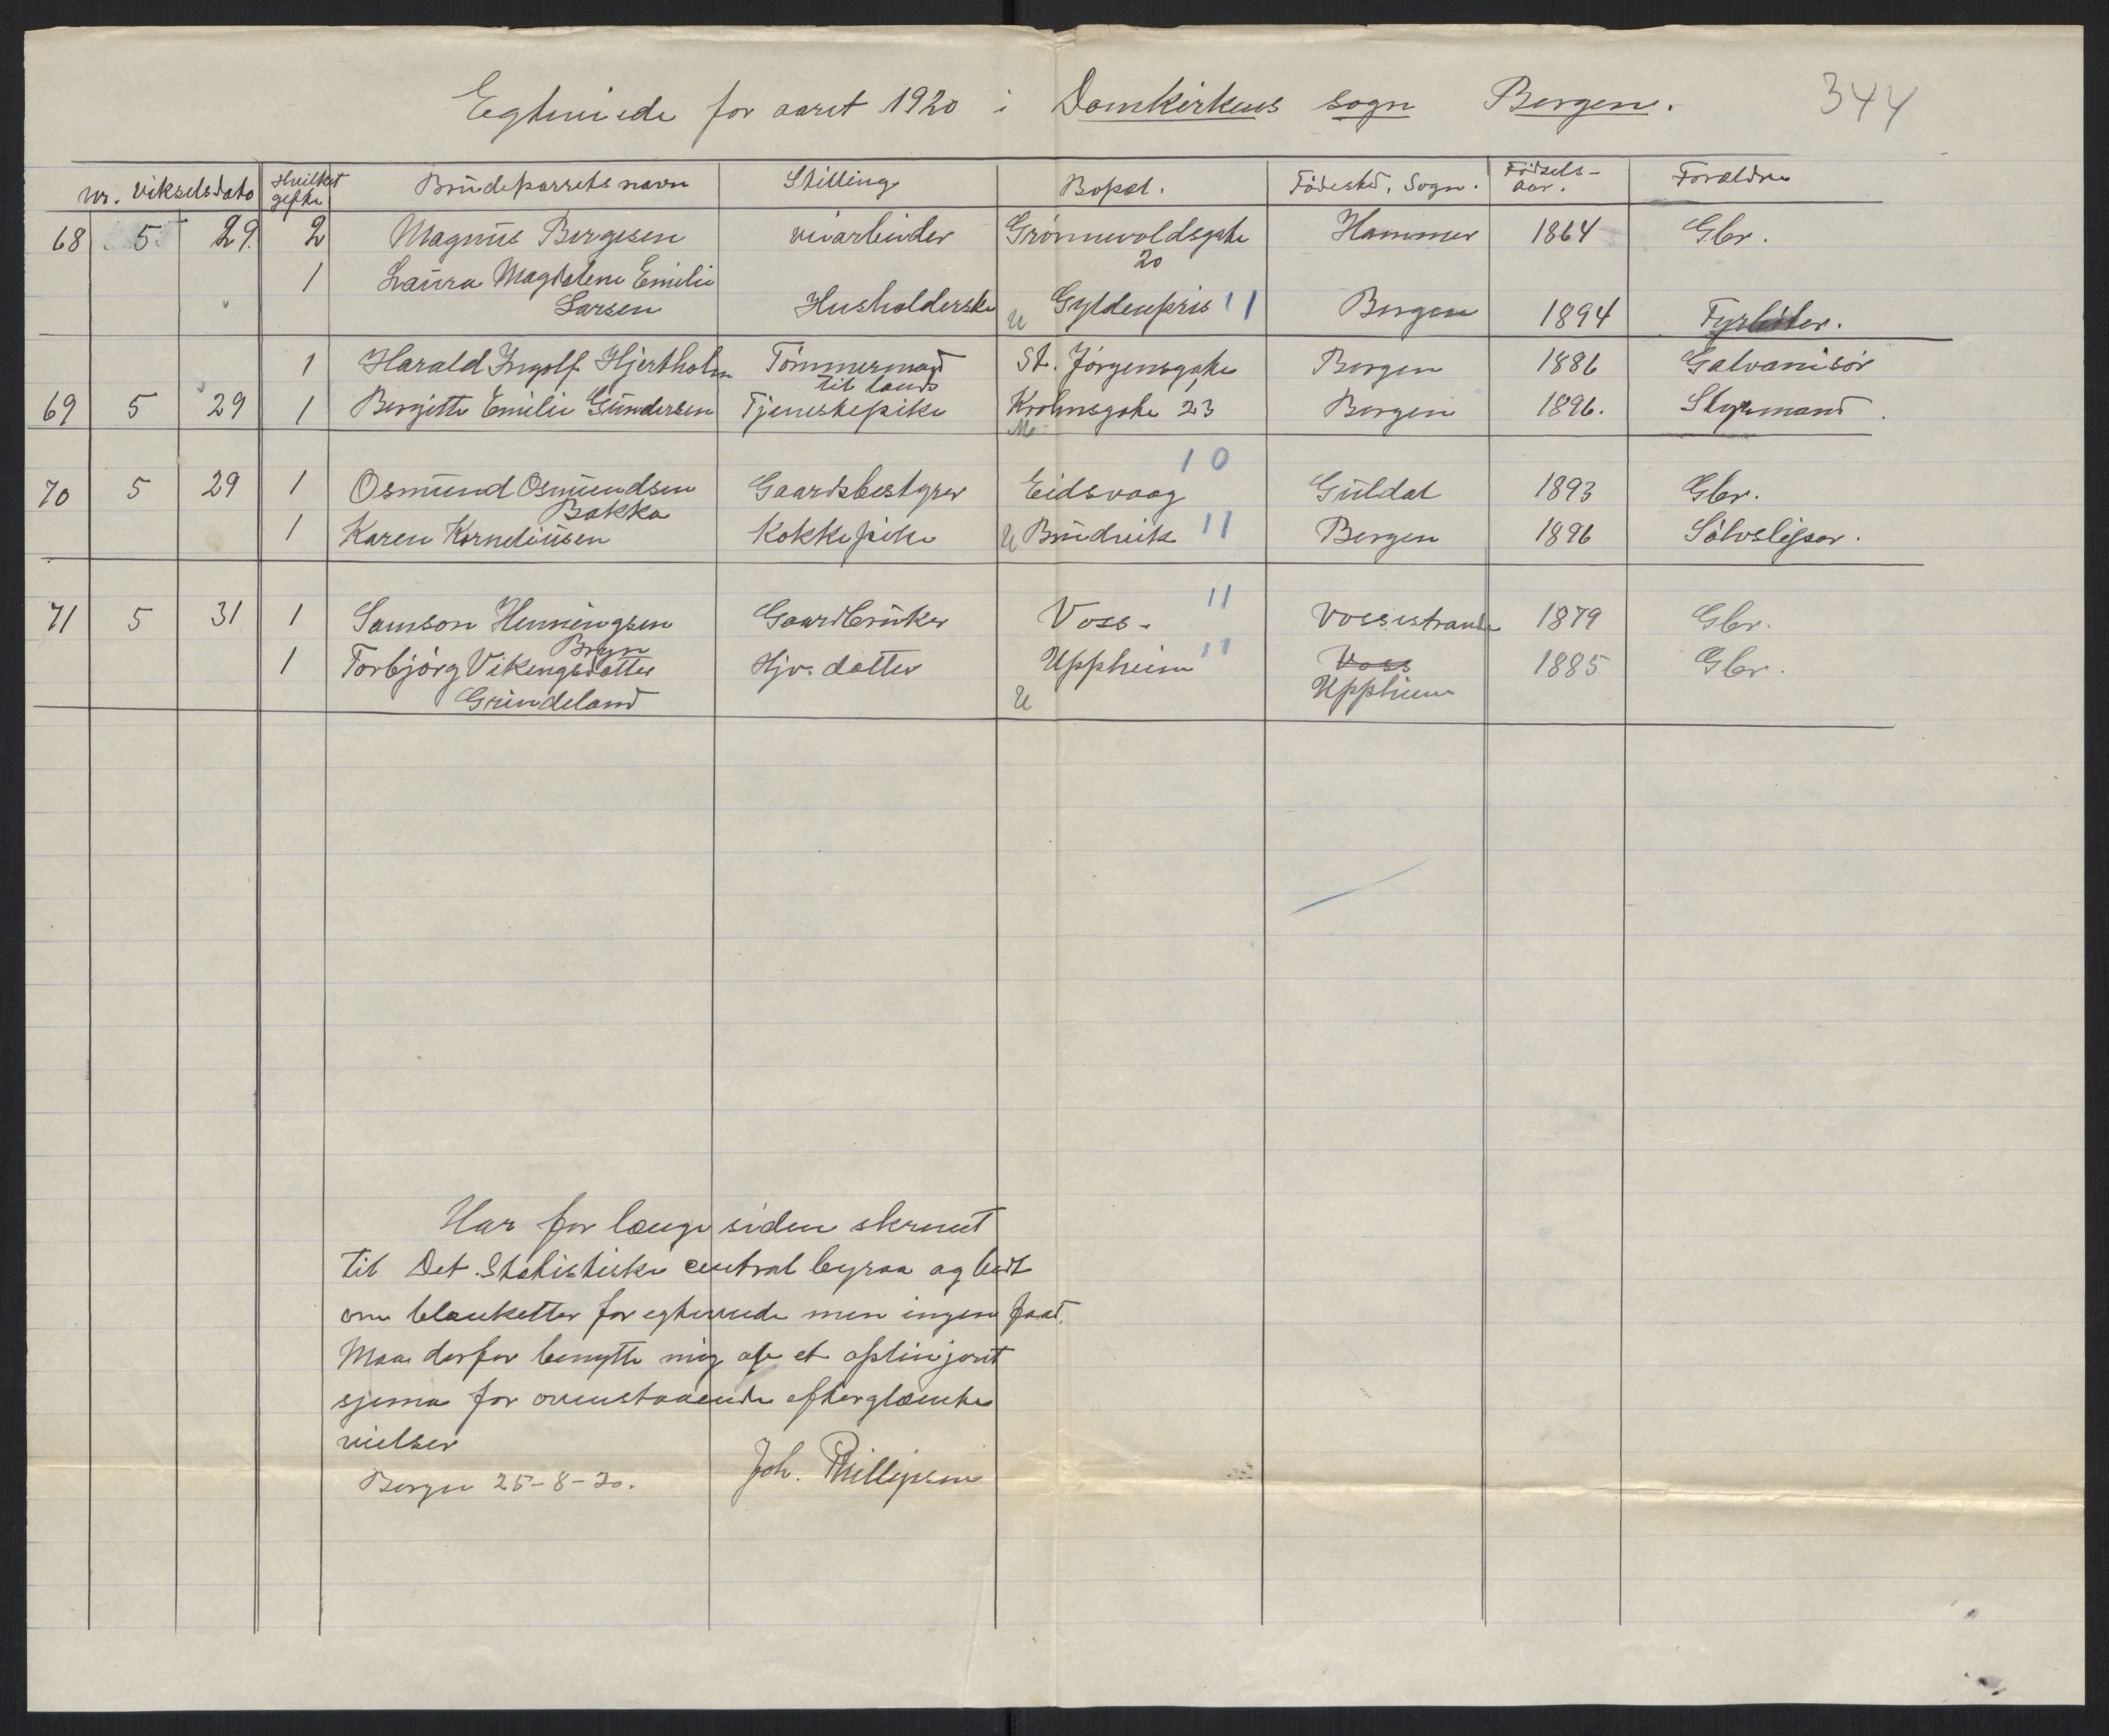 Egteviede for aaret 1920 i Domkirkens sogn Bergen. 344
nr. Vikselsdato Hvilket gifte Brudeparrets navn Stilling Bopæl. Fødested. Sogn. Fødsels-aar. Forældre
68 5 29. 2 Magnus Børgesen veiarbeider Grønnevoldsgate 20 Hammer 1864 Gbr.
1 Laura Magdalene Emilie
Larsen Husholderske U Gyldenpris 11 Bergen 1894 Fyrbøter.
1 Harald Ingolf Hjertholm Tømmermand til lands St. Jørgensgate Bergen 1886 Galvanisør
69 5 29 1 Bergitte Emilie Gundersen Tjenestepike Krohnsgate 23 Bergen 1896. Styrmand
10
70 5 29 1 Osmund Osmundsen Gaardsbestyrer Eidsvaag Guldal 1893 Gbr.
Bakka
1 Karen Korneliusen Kokkepike U Bruvik 11 Bergen 1896 Sølvsliper.
71 5 31 1 Samson Henningsen Gaardbruker Voss. 11 Vossestrand 1879 Gbr.
Bryn
1 Torbjørg Vikengsdotter Hjv. datter Uppheim 11 Voss 1885 Gbr.
Grindeland U Uppheim
Har for længe siden skrevet
til Det Statistiske centralbyraa og bedt
om blanketter for egteviede men ingen faat.
Maa derfor benytte mig af et oplinjert
sjema for ovenstaaende efterglemte
vielser
Bergen 25-8-20. Joh. Phillipsen